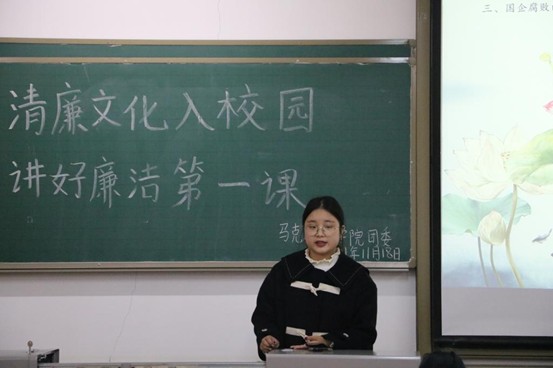 清廉文化入校园
讲好廉洁第一课
马克 学院团委
1年11月18日
三、国企腐败